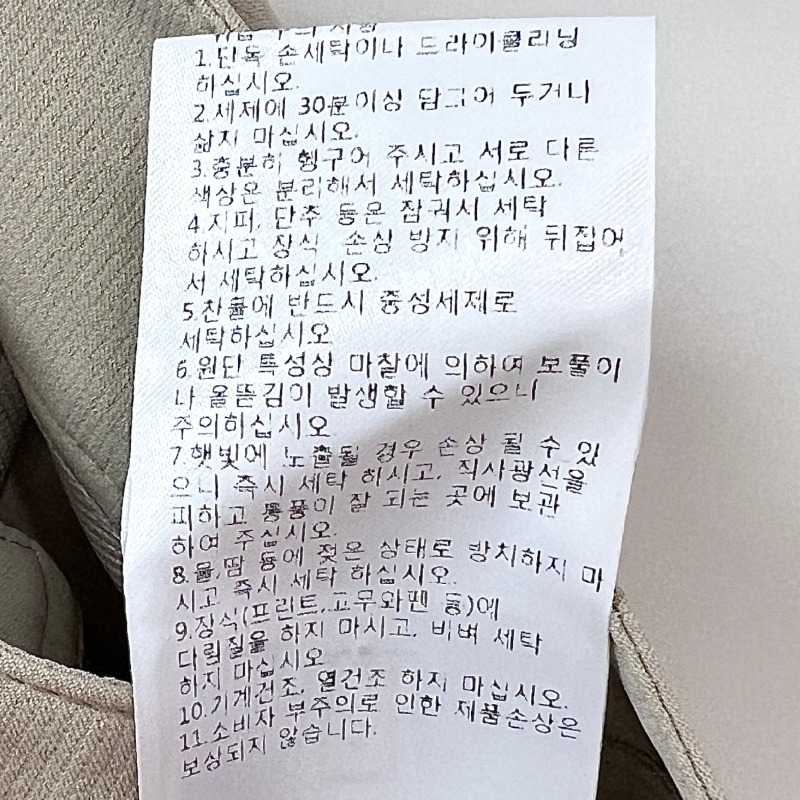 취급 주의 사항
1.단독 손세탁이나 드라이클리닝
하십시오.
2.세제에 30분이상 담그어 두거나
삶지 마십시오.
3.충분히 헹구어 주시고 서로 다른
색상은 분리해서 세탁하십시오.
4.지퍼, 단추 등은 잠궈서 세탁
하시고 장식 손상 방지 위해 뒤집어
서 세탁하십시오.
5.찬물에 반드시 중성세제로
세탁하십시오
6.원단 특성상 마찰에 의하여 보풀이
나 올뜯김이 발생할 수 있으니
주의하십시오
7.햇빛에 노출될 경우 손상 될 수 있
으니 즉시 세탁 하시고, 직사광선을
피하고 통풍이 잘 되는 곳에 보관
하여 주십시오.
8.물,땀 등에 젖은 상태로 방치하지 마
시고 즉시 세탁 하십시오.
9.장식(프린트,고무와펜 등)에
다림질을 하지 마시고, 비벼 세탁
하지 마십시오
10.기계건조, 열건조 하지 마십시오.
11.소비자 부주의로 인한 제품손상은
보상되지 않습니다.